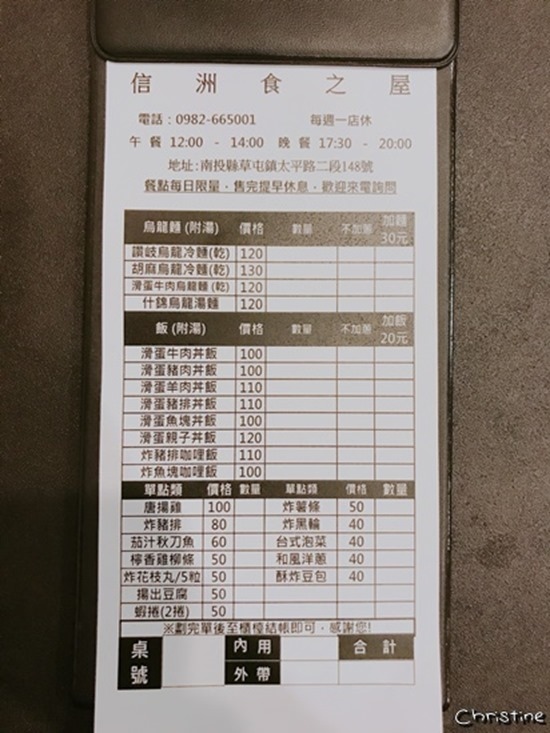 信洲食之屋
電話：0982-665001 每週一店休
午餐 12:00 - 14:00 晚餐 17:30 - 20:00
地址:南投縣草屯鎮太平路二段148號
餐點每日限量，售完提早休息，歡迎來電詢問
烏龍麵(附湯) 價格 數量 不加蔥 加麵30元
讚岐烏龍冷麵(乾) 120
胡麻烏龍冷麵(乾) 130
滑蛋牛肉烏龍麵(乾) 120
什錦烏龍湯麵 120
飯(附湯) 價格 數量 不加蔥 加飯20元
滑蛋牛肉丼飯 100
滑蛋豬肉丼飯 100
滑蛋羊肉丼飯 110
滑蛋豬排丼飯 110
滑蛋魚塊丼飯 100
滑蛋親子丼飯 120
炸豬排咖哩飯 110
炸魚塊咖哩飯 100
單點類 價格 數量 單點類 價格 數量
唐揚雞 100 炸薯條 50
炸豬排 80 炸黑輪 40
茄汁秋刀魚 60 台式泡菜 40
檸香雞柳條 50 和風洋蔥 40
炸花枝丸/5粒 50 酥炸豆包 40
揚出豆腐 50
蝦捲(2捲) 50
※劃完單後至櫃檯結帳即可，感謝您!
桌號 內用 合計
外帶
Christine